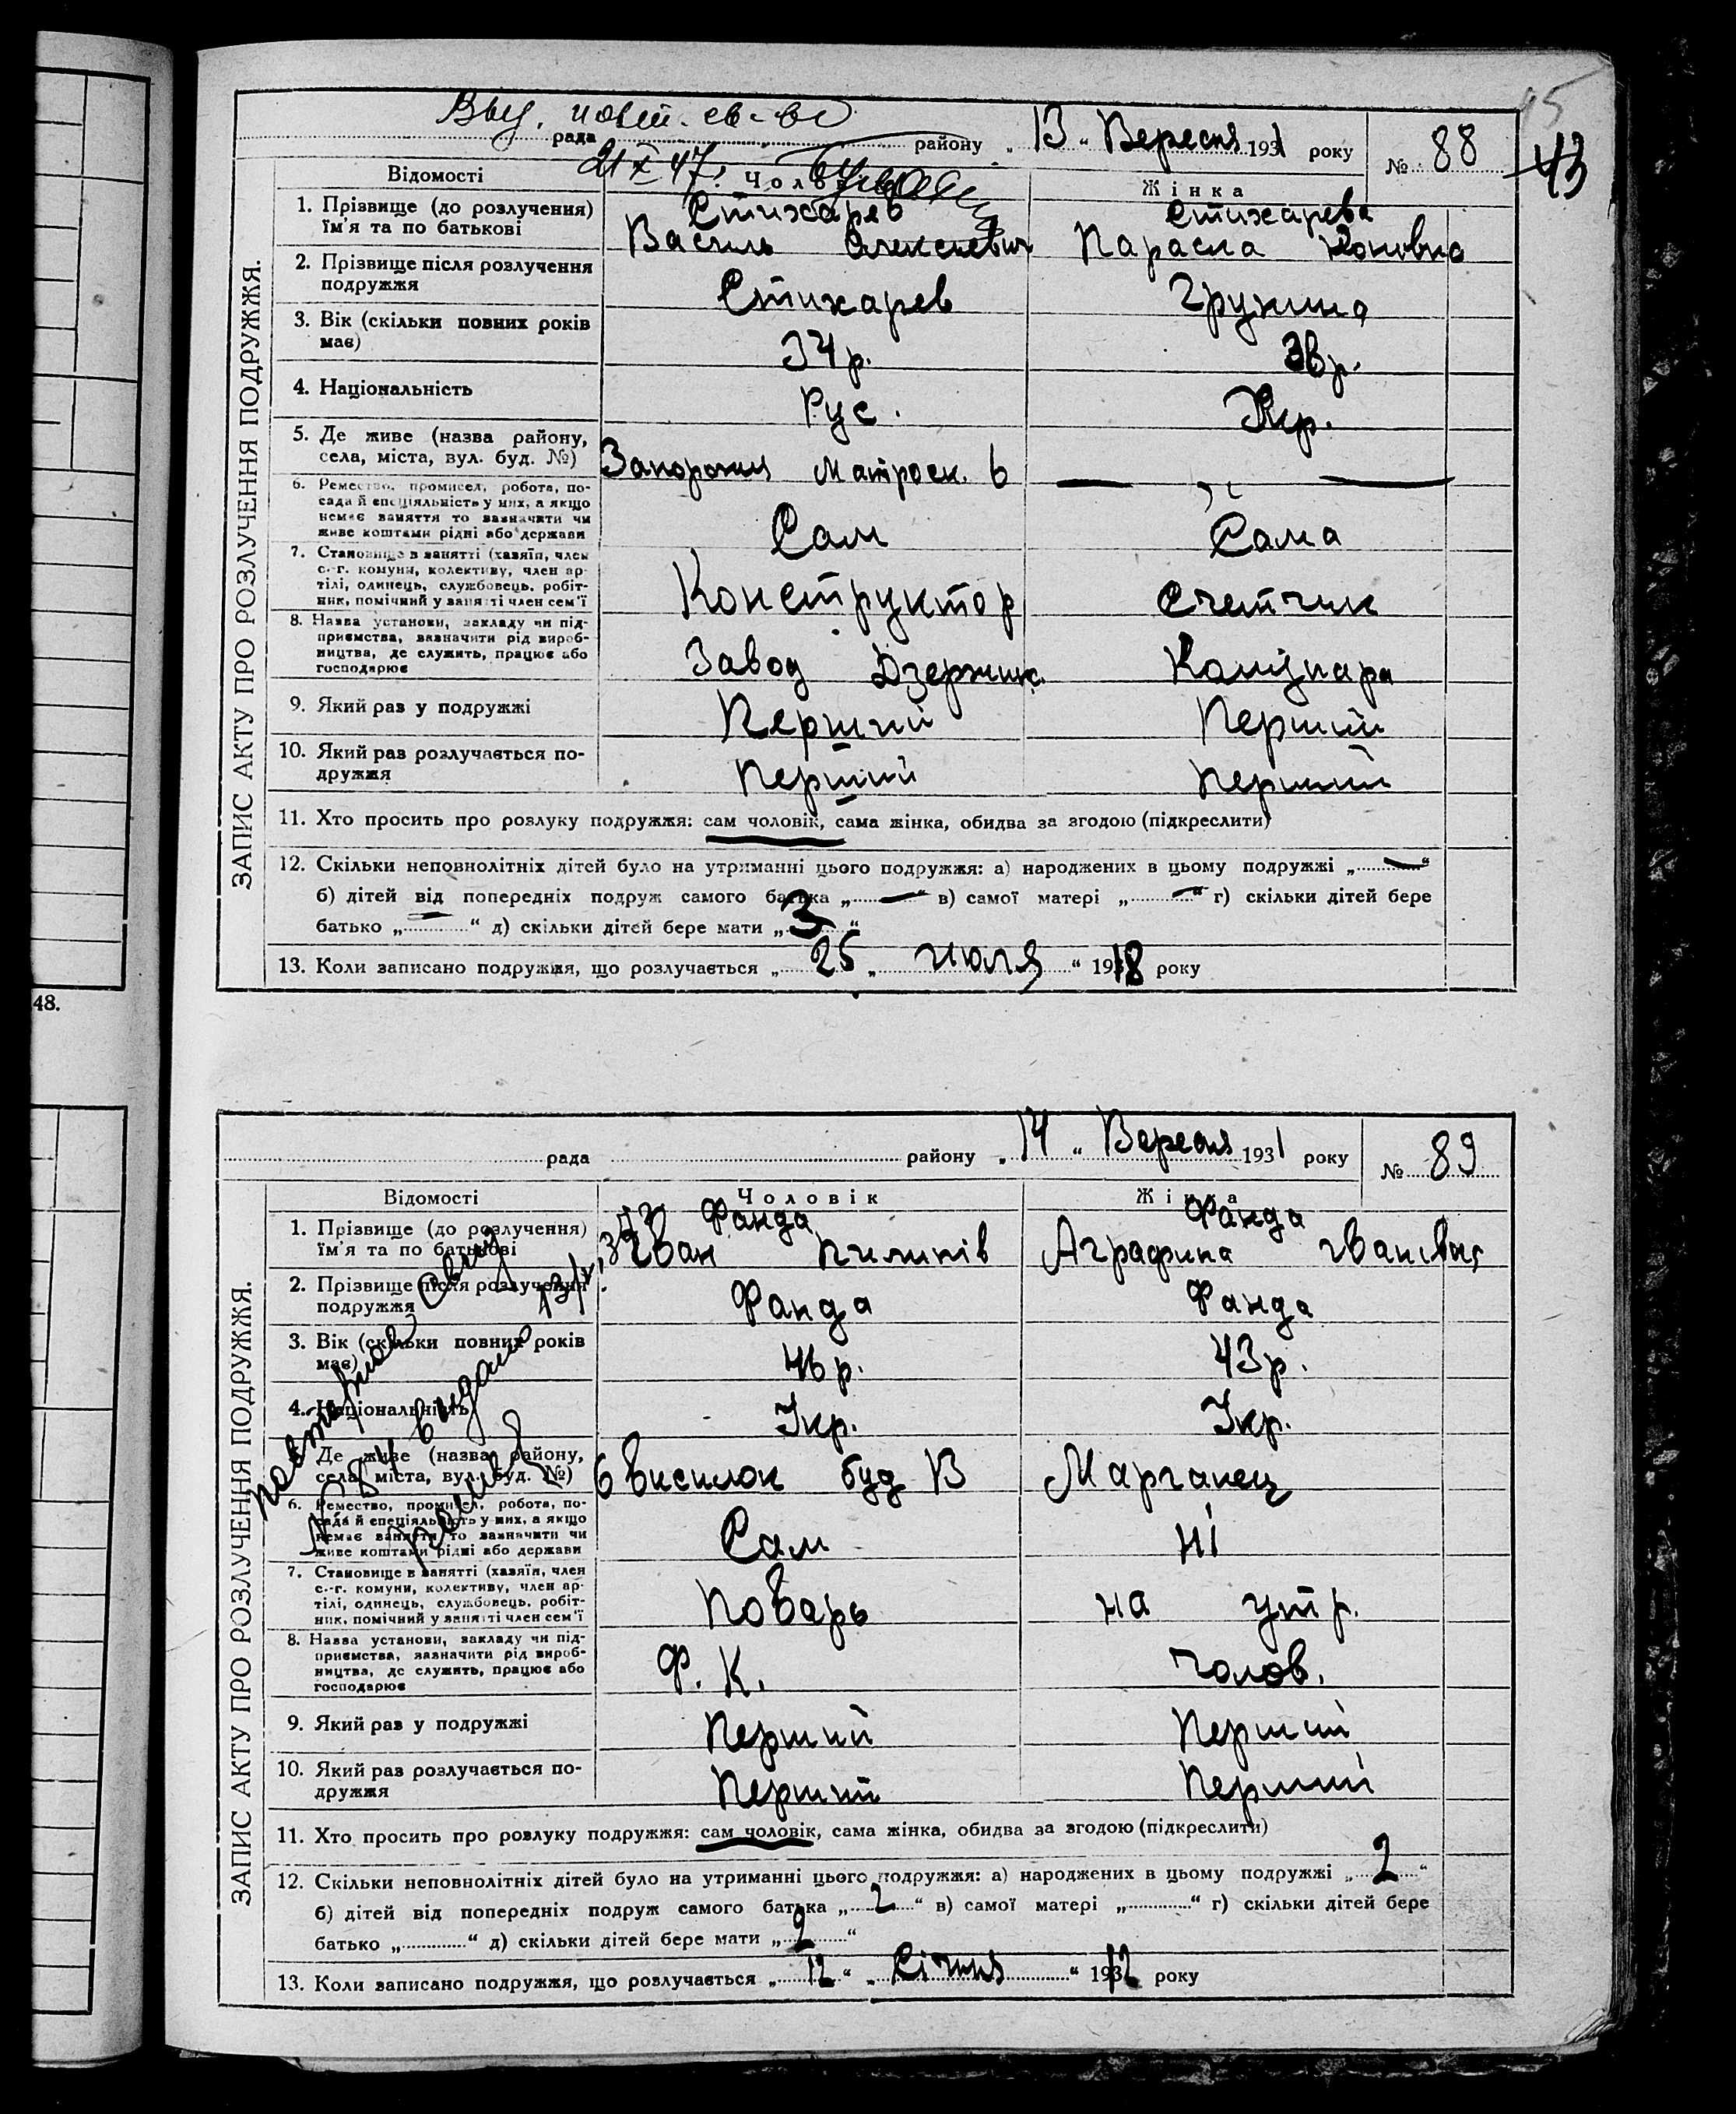 45
Выд. повт. св-во
рада району „ 13 “ Вересня 1931 року № 88
43
21 X 47.
Відомості Чоловік Жінка
1. Прізвище (до розлучення) їм'я та по батькові
Стихарев Стихарева
Василь Олексієвич Параска
2. Прізвище після розлучення подружжя
Стихарев
3. Вік (скільки повних років має)
34 р. 3вр.
4. Національність
Рус. Укр.
5. Де живе (назва району, села, міста, вул. буд. №)
Запорожжя Матроск. 6 — „ —
6. Ремество, промисел, робота, посада й спеціяльність у них, а якщо немає заняття то зазначити чи живе коштами рідні або держави
Сам Сама
7. Становище в занятті (хазяїн, член с.-г. комуни, колективу, член артілі, одинець, службовець, робітник, помічний у занятті член сем'ї
Конструктор Счетчик
8. Назва установи, закладу чи підприємства, зазначити рід виробництва, де служить, працює або господарює
Завод Дзержинс.
9. Який раз у подружжі
Перший Перший
10. Який раз розлучається подружжя
Перший Перший
11. Хто просить про розлуку подружжя: сам чоловік, сама жінка, обидва за згодою (підкреслити)
12. Скільки неповнолітніх дітей було на утриманні цього подружжя: а) народжених в цьому подружжі „ — “
б) дітей від попередніх подруж самого батька „ — “ в) самої матері „ — “ г) скільки дітей бере
батько „ — “ д) скільки дітей бере мати „ 3 “
13. Коли записано подружжя, що розлучається „ 25 „ июля “ 1918 року
ЗАПИС АКТУ ПРО РОЗЛУЧЕННЯ ПОДРУЖЖЯ.
48.
рада району „ 14 “ Вересня 1931 року № 89
Відомості Чоловік Жінка
1. Прізвище (до розлучення) їм'я та по батькові
Фанда Фанда
Іван Пилипів Аграфина Іванівна
2. Прізвище після розлучення подружжя
Фанда Фанда
3. Вік (скільки повних років має)
46 р. 43 р.
4. Національність
Укр. Укр.
5. Де живе (назва району, села, міста, вул. буд. №)
6 висилок буд 13 Марганец
6. Ремество, промисел, робота, посада й спеціяльність у них, а якщо немає заняття то зазначити чи живе коштами рідні або держави
Сам Ні
7. Становище в занятті (хазяїн, член с.-г. комуни, колективу, член артілі, одинець, службовець, робітник, помічний у занятті член сем'ї
Поварь на утр.
8. Назва установи, закладу чи підприємства, зазначити рід виробництва, де служить, працює або господарює
Ф. К. чолов.
9. Який раз у подружжі
Перший Перший
10. Який раз розлучається подружжя
Перший Перший
11. Хто просить про розлуку подружжя: сам чоловік, сама жінка, обидва за згодою (підкреслити)
12. Скільки неповнолітніх дітей було на утриманні цього подружжя: а) народжених в цьому подружжі „ 2 “
б) дітей від попередніх подруж самого батька „ 2 “ в) самої матері „ “ г) скільки дітей бере
батько „ “ д) скільки дітей бере мати „ 2 “
13. Коли записано подружжя, що розлучається „ 12 “ „ Січня “ 1912 року
ЗАПИС АКТУ ПРО РОЗЛУЧЕННЯ ПОДРУЖЖЯ.